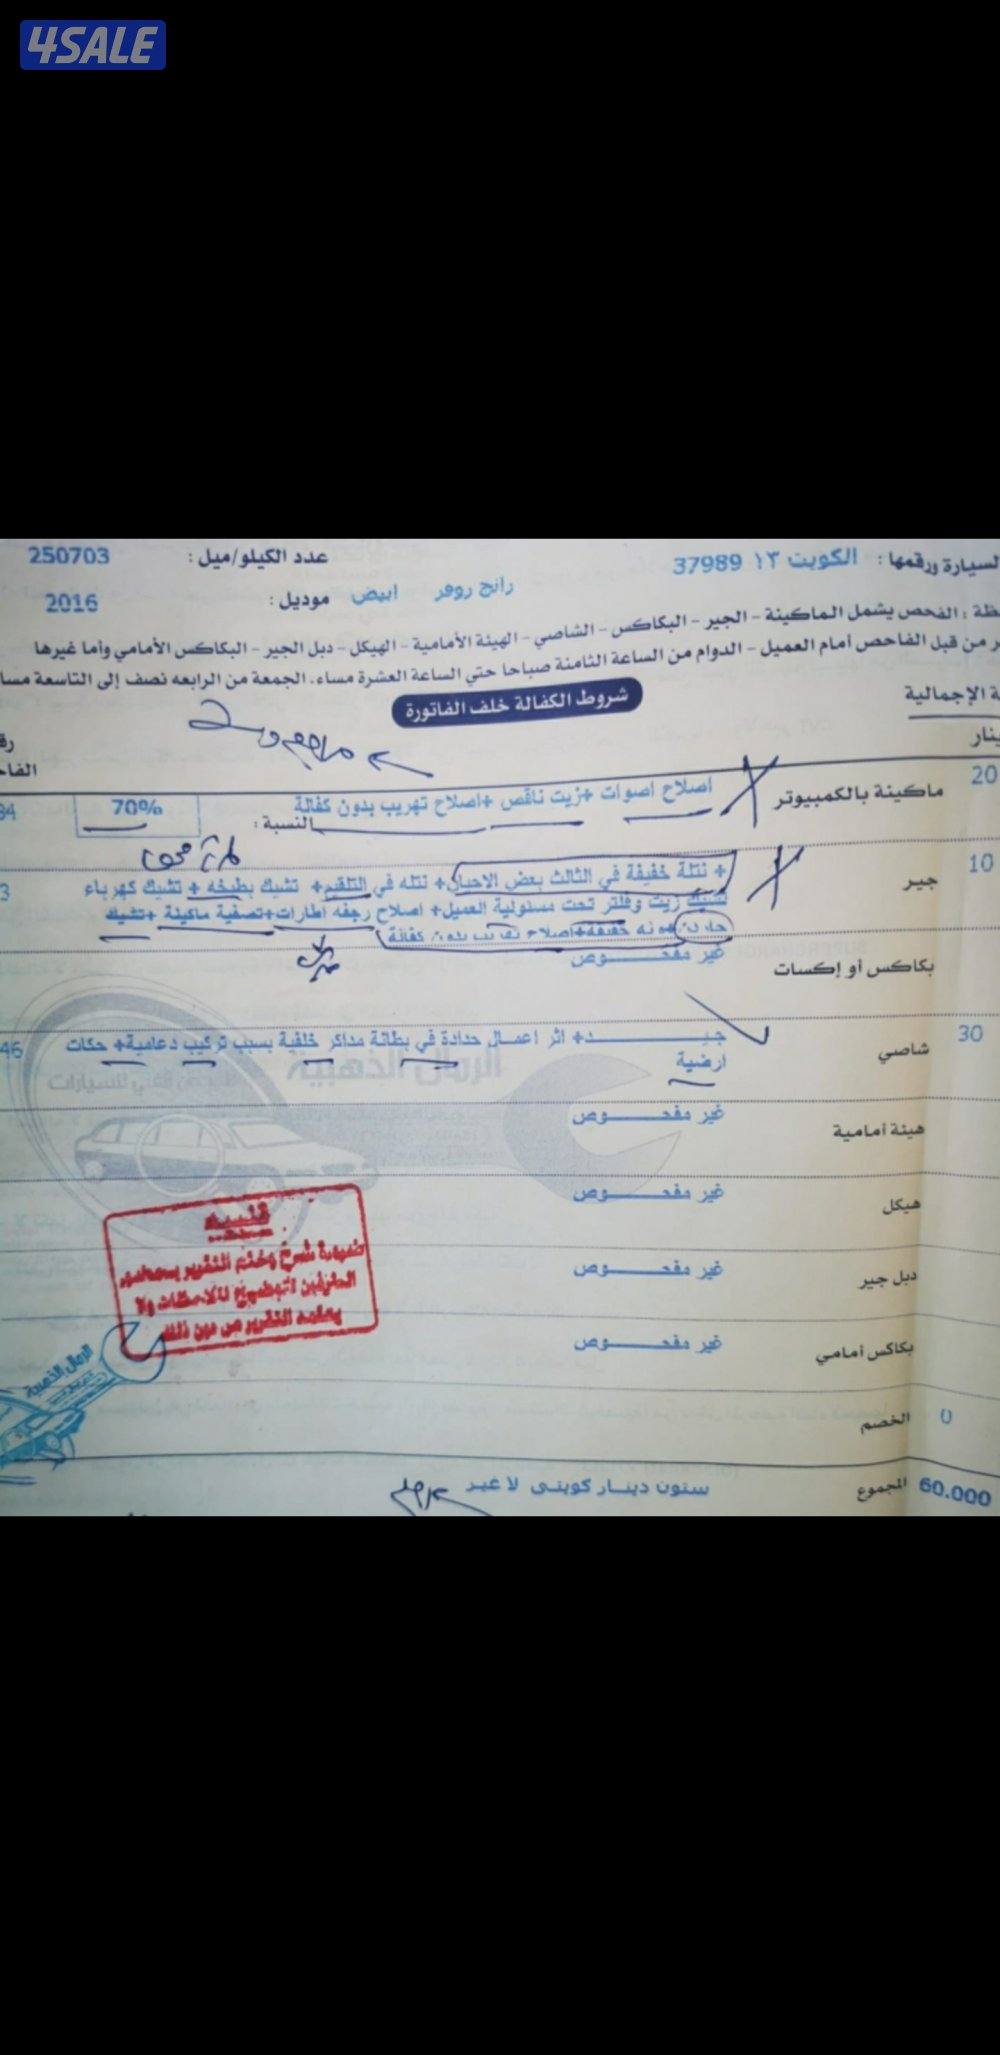 4SALE
السيارة ورقمها : الكويت ١٣ 37989 عدد الكيلو/ميل : 250703
رانج روفر ابيض موديل : 2016
الفحص يشمل الماكينة - الجير - البكاكس - الشاصي - الهيئة الأمامية - الهيكل - دبل الجير - البكاكس الأمامي وأما غيرها
من قبل الفاحص أمام العميل - الدوام من الساعة الثامنة صباحا حتي الساعة العشرة مساء. الجمعة من الرابعه نصف إلى التاسعة
شروط الكفالة خلف الفاتورة
الإجمالية
20 ماكينة بالكمبيوتر اصلاح اصوات +زيت ناقص +اصلاح تهريب بدون كفالة النسبة : 70%
10 جير + نتلة خفيفة في الثالث بعض الاحيان+ نتله في التلقيم+ تشيك بطيخه + تشيك كهرباء
تشيك زيت وفلتر تحت مسئولية العميل+ اصلاح رجفه اطارات+تصفية ماكينة +تشيك
خفيفة+اصلاح تهريب بدون كفالة
بكاكس أو إكسات غير مفحـــوص
30 شاصي جيـــد+ اثر اعمال حدادة في بطانة مداكر خلفية بسبب تركيب دعامية+ حكات
ارضية
الرمال الذهبية
هيئة أمامية غير مفحـــوص
هيكل غير مفحـــوص
دبل جير غير مفحـــوص
بكاكس أمامي غير مفحـــوص
تنبيه
ضرورة شرح وختم التقرير بحضور
الطرفين لتوضيح الملاحظات ولا
يعتمد التقرير من دون ذلك
الرمال الذهبية
0 الخصم
60.000 المجموع ستون دينـار كويتى لا غير